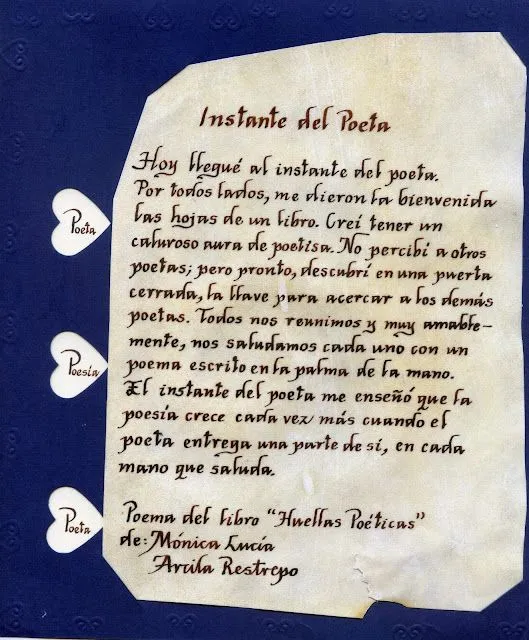 Instante del Poeta
Hoy llegué al instante del poeta.
Por todos lados, me dieron la bienvenida
las hojas de un libro. Creí tener un
caluroso aura de poetisa. No percibí a otros
poetas; pero pronto, descubrí en una puerta
cerrada, la llave para acercar a los demás
poetas. Todos nos reunimos y muy amable-
mente, nos saludamos cada uno con un
poema escrito en la palma de la mano.
El instante del poeta me enseñó que la
poesía crece cada vez más cuando el
poeta entrega una parte de sí, en cada
mano que saluda.
Poema del libro "Huellas Poéticas"
de: Mónica Lucía
Arcila Restrepo
Poeta
Poesía
Poeta